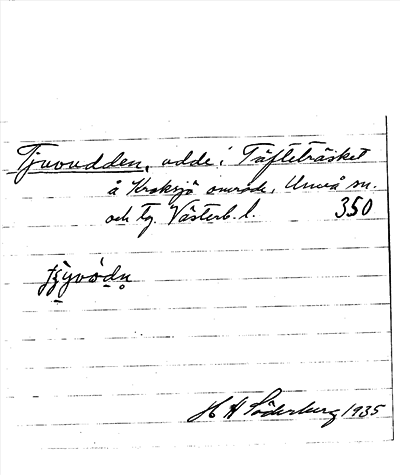 Tjuvudden, udde i Täfteträsket
å Kroksjö område, Umeå sn.
och tg. Västerb. l. 350
H A Söderburg 1935